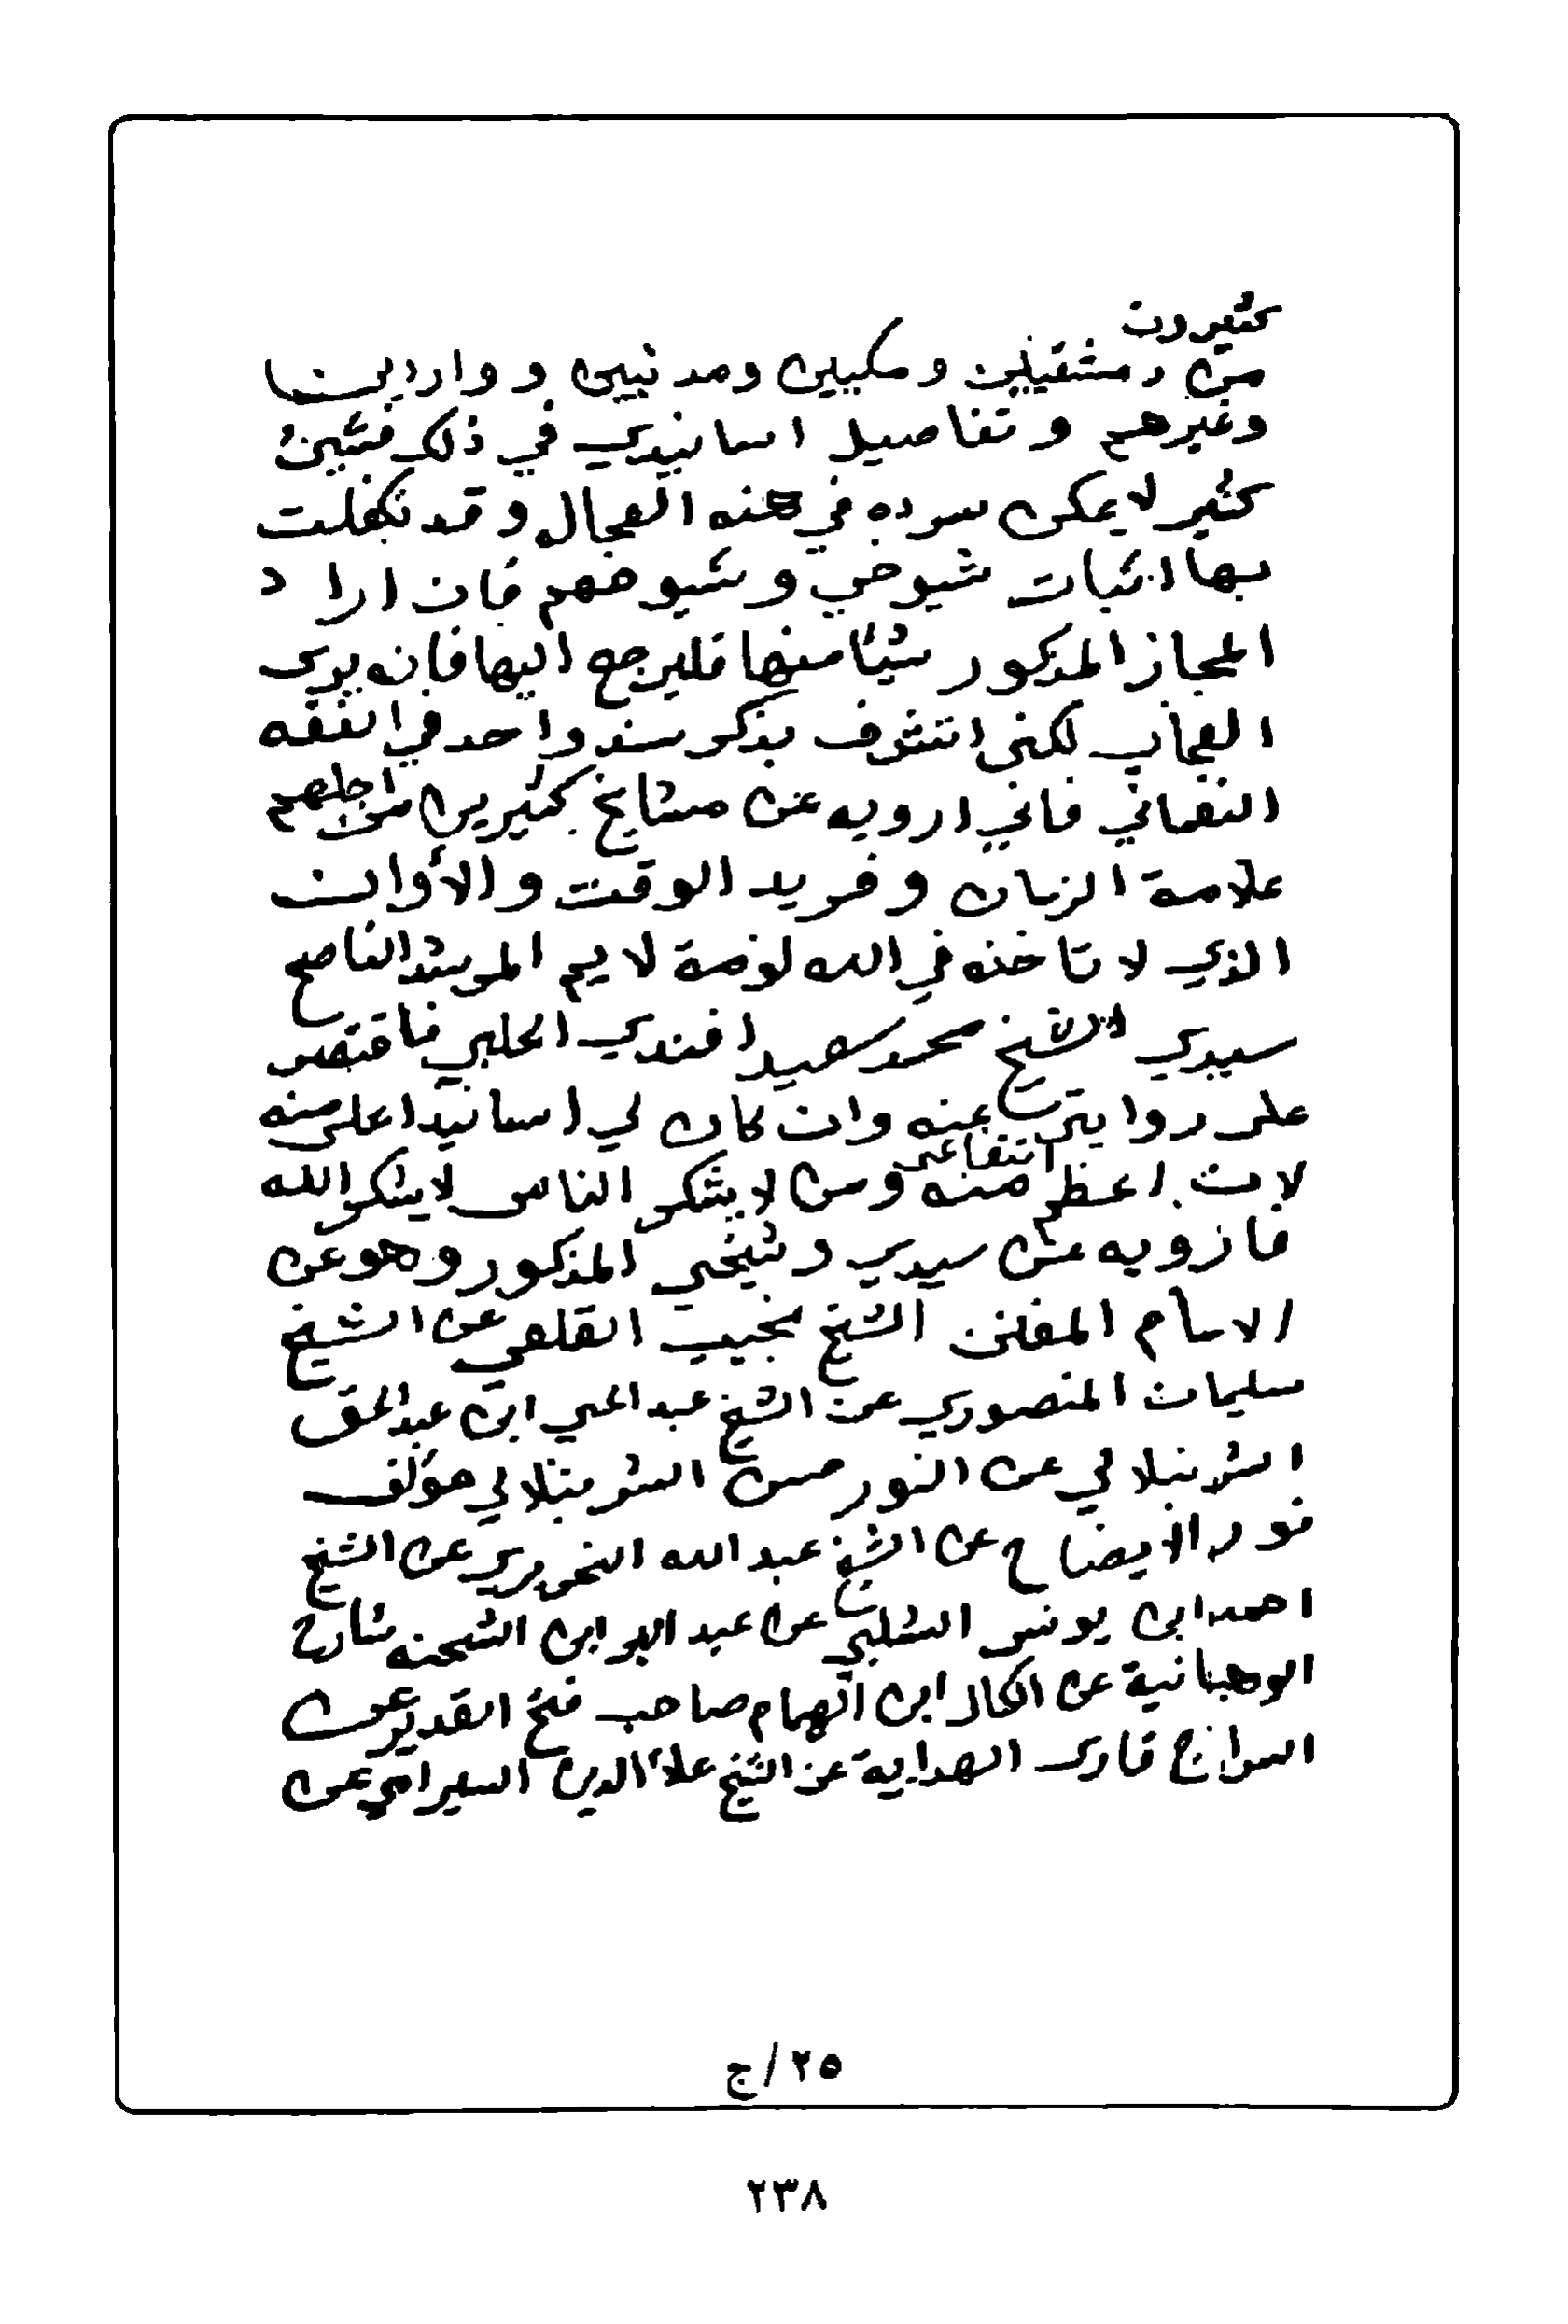 كثيرون
من دمشقيين ومكيين ومدنيين و واردين
وغيرهم و تفاصيل اسانيدي في ذلك فشيئ
كثير لا يمكن سرده في هذه العجال و قد تكفلت
بها اثبات شيوخي و شيوخهم فان اراد
المجاز المذكور شيئا منها فليرجع اليها فانه يرى
العجاب لكني اتشرف بذكر سند واحد في الفقه
النعماني فاني ارويه عن مشايخ كثيرين من اجلهم
علامة الزمان و فريد الوقت و الأوان
الذي لا تاخذه في الله لومة لايم المرشد الناصح
سيدي الشيخ محمد سعيد افندي الحلبي فاقتصر
على روايتي عنه وان كان لي اسانيد اعلى منه
لان اعظم انتفاعي منه ومن لا يشكر الناس لا يشكر الله
فارويه عن سيدي وشيخي المذكور وهو عن
الامام المفنن الشيخ نجيب القلعي عن الشيخ
سليمان المنصوري عن الشيخ عبد الحي ابن عبد الحق
الشرنبلالي عن النور حسن الشرنبلالي مؤلف
نور الايضاح عن الشيخ عبد الله النحريري عن الشيخ
احمد ابن يونس الشلبي عن عبد البر ابن الشحنه شارح
الوهبانية عن الكمال ابن الهمام صاحب فتح القدير عن
السراج قارى الهداية عن الشيخ علاء الدين السيرامي عن
٢٥/ج
٢٣٨